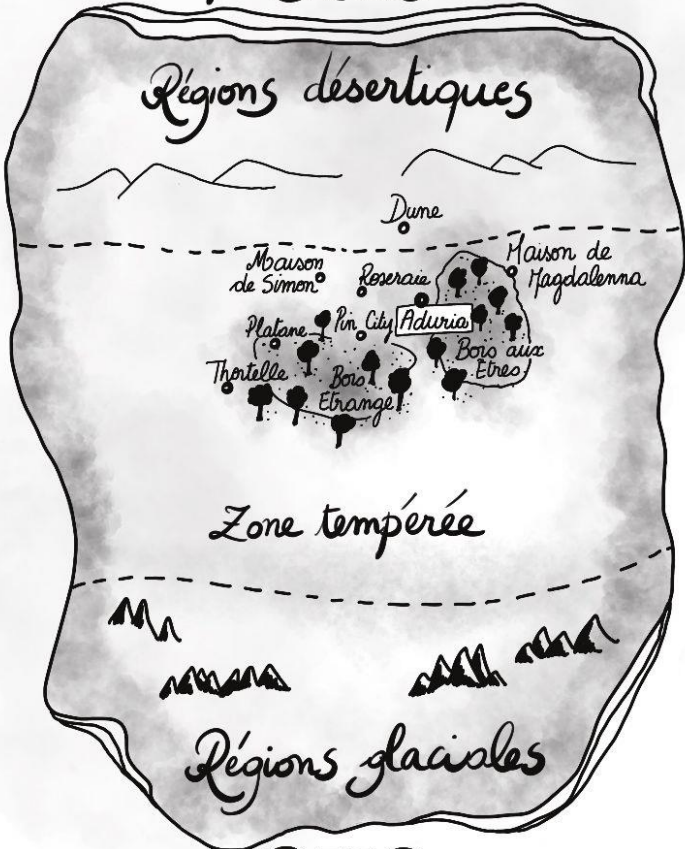 Régions désertiques
Dune
Maison
de Simon
Roseraie
Maison de
Magdalenna
Platane
Pin City
Aduria
Thortelle
Bois
Etrange
Bois aux
Etres
Zone tempérée
Régions glaciales